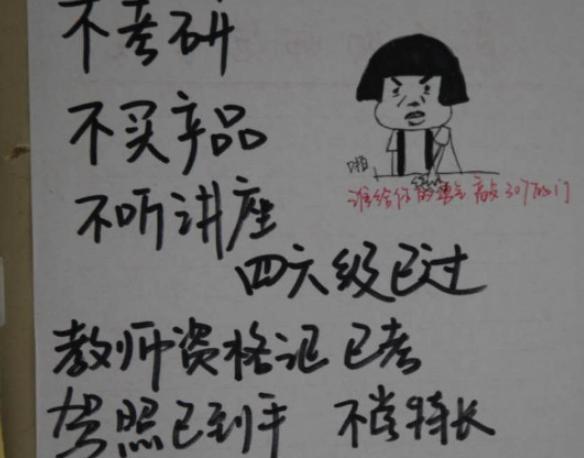 不考研
不买产品
啪
谁给你的勇气敲307的门
不听讲座
四六级已过
教师资格证已考
驾照已到手 不当特长